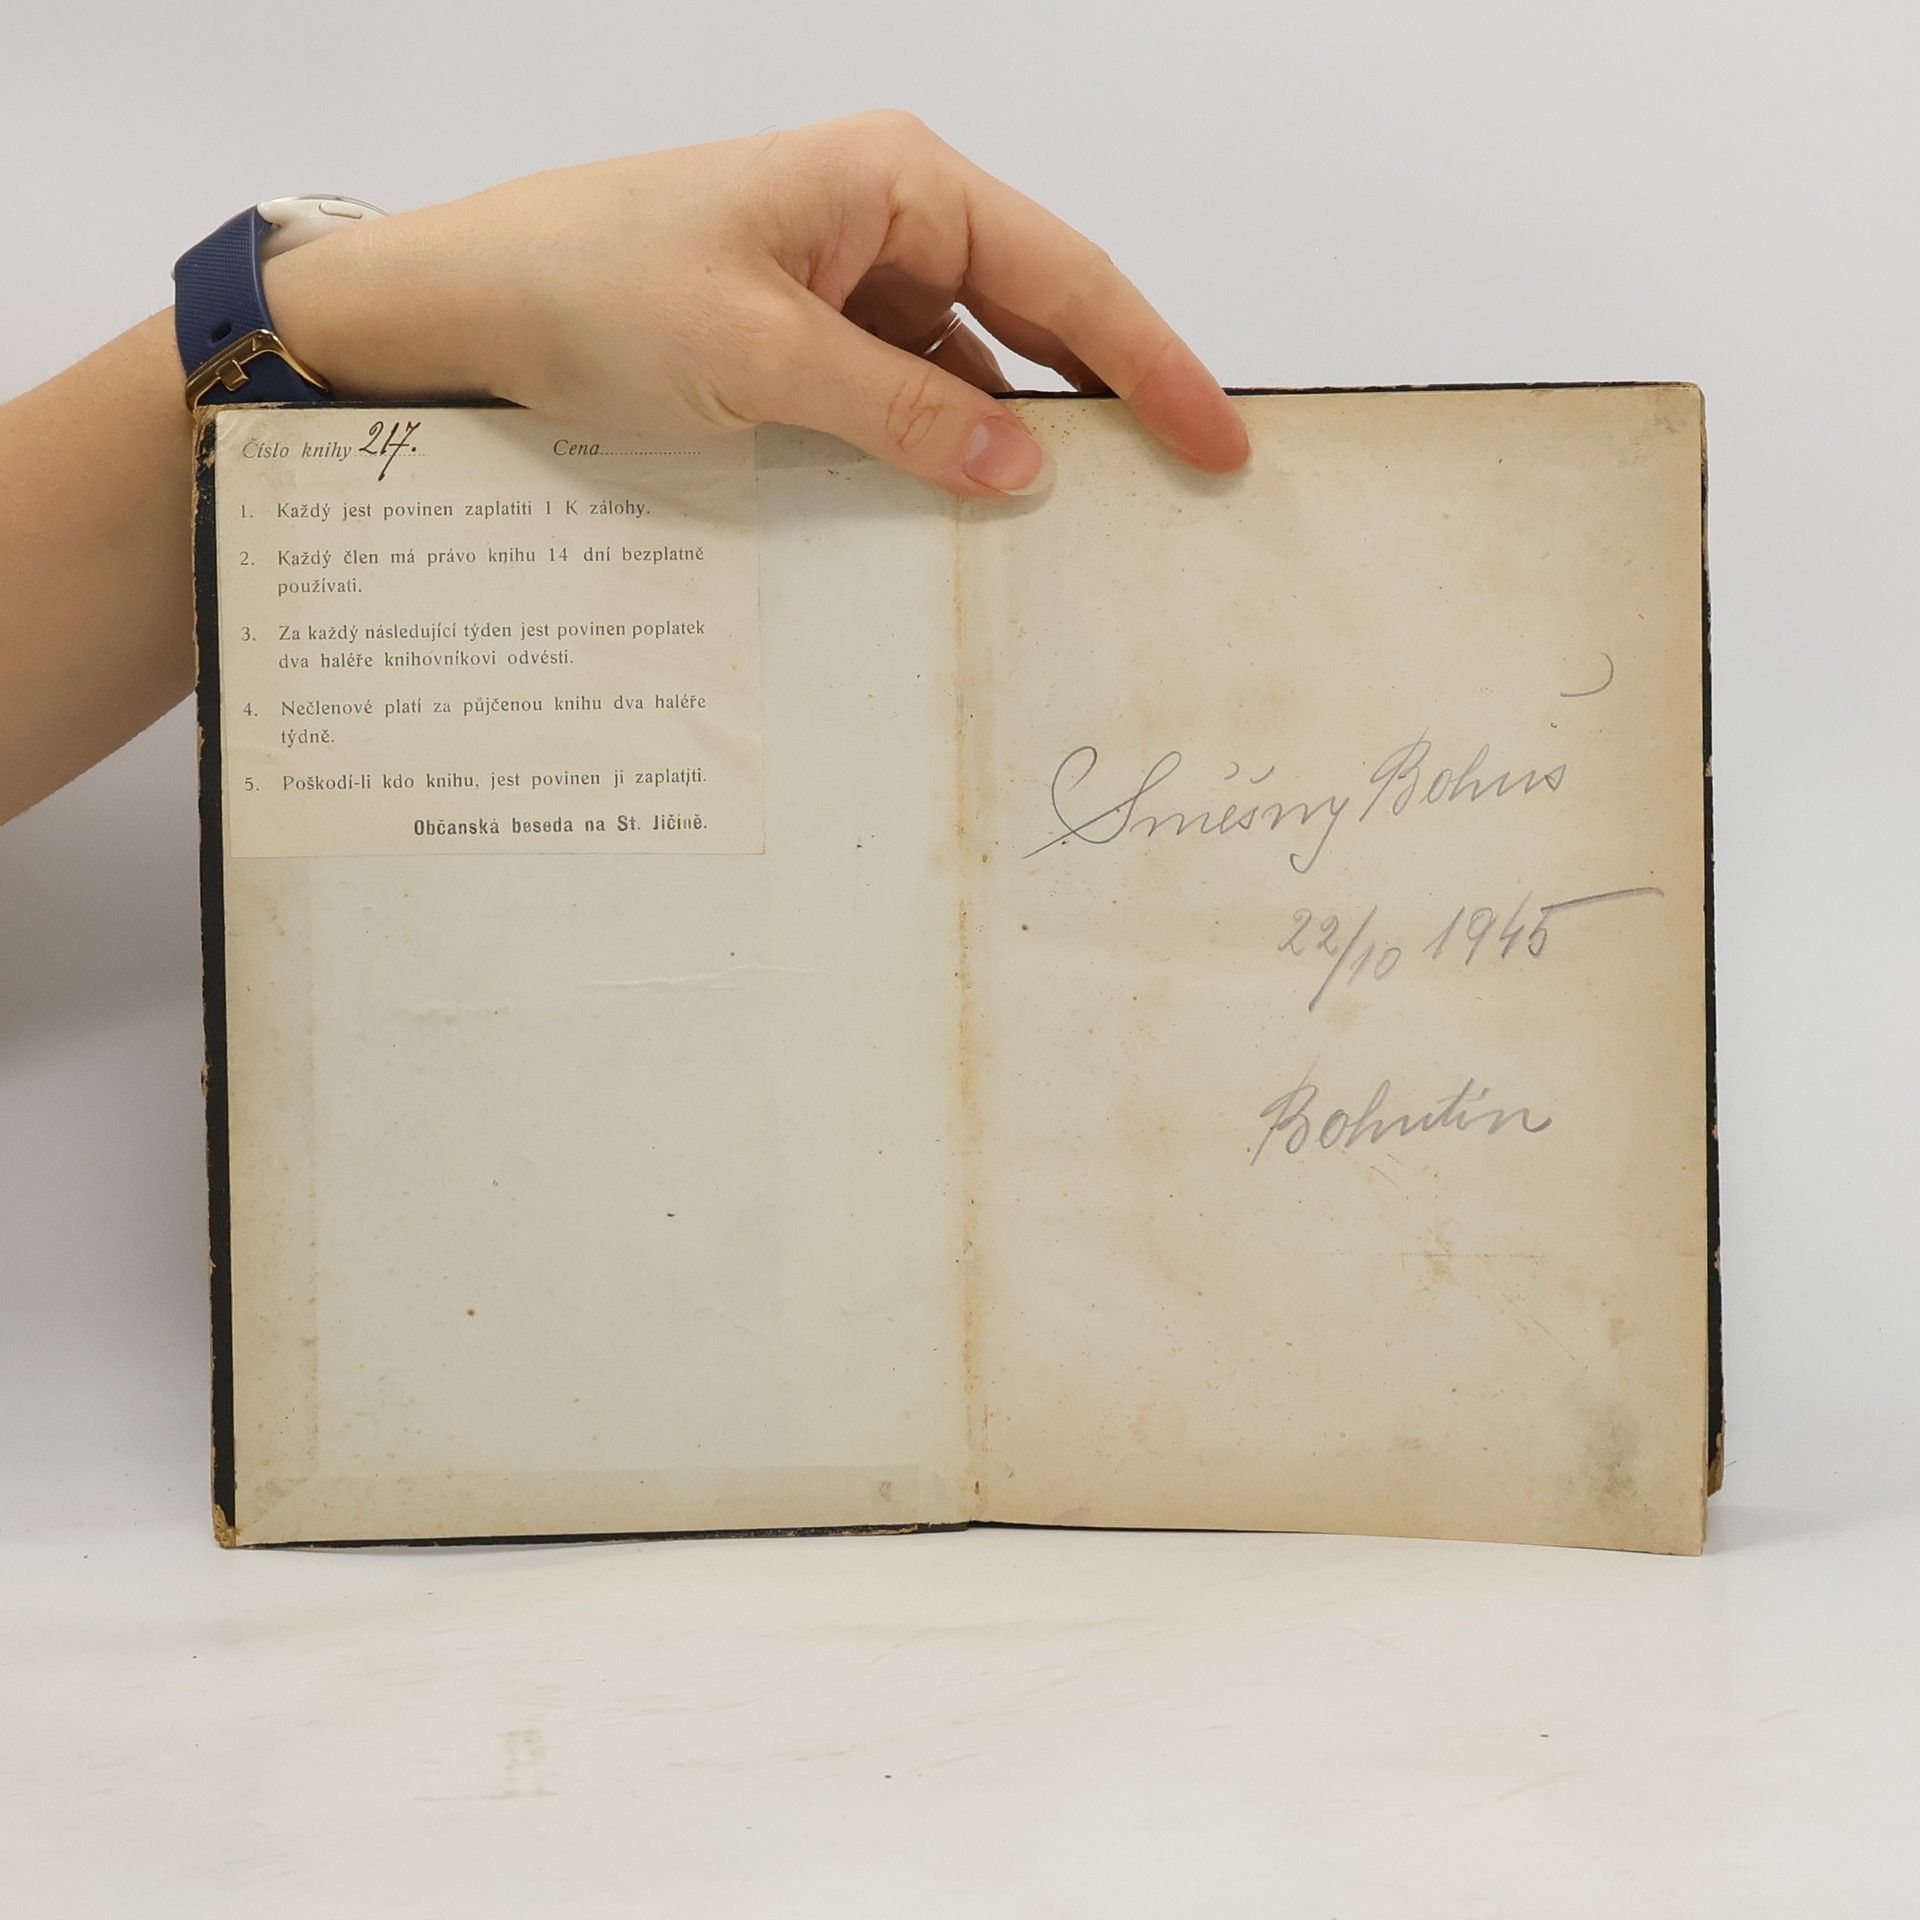 Číslo knihy 217. Cena
1. Každý jest povinen zaplatiti 1 K zálohy.
2. Každý člen má právo knihu 14 dní bezplatně
používati.
3. Za každý následující týden jest povinen poplatek
dva haléře knihovníkovi odvésti.
4. Nečlenové platí za půjčenou knihu dva haléře
týdně.
5. Poškodí-li kdo knihu, jest povinen ji zaplatiti.
Občanská beseda na St. Jičíně.
Směšny Bohuš
22/10 1945
Bohutin